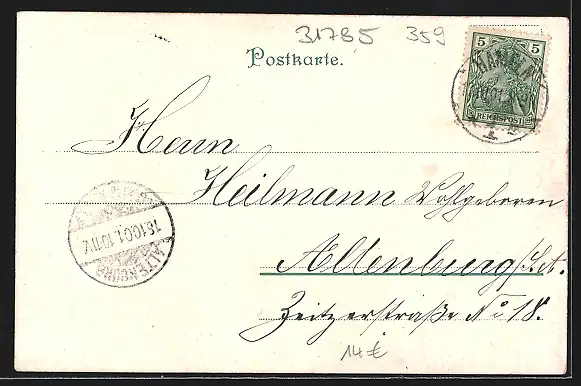 31785 359
Postkarte.
5 5
REICHSPOST
Herrn
Heilmann Wohlgeboren
Altenburg S/A.
Zeitzerstraße No 18.
ALTENBURG
14 €